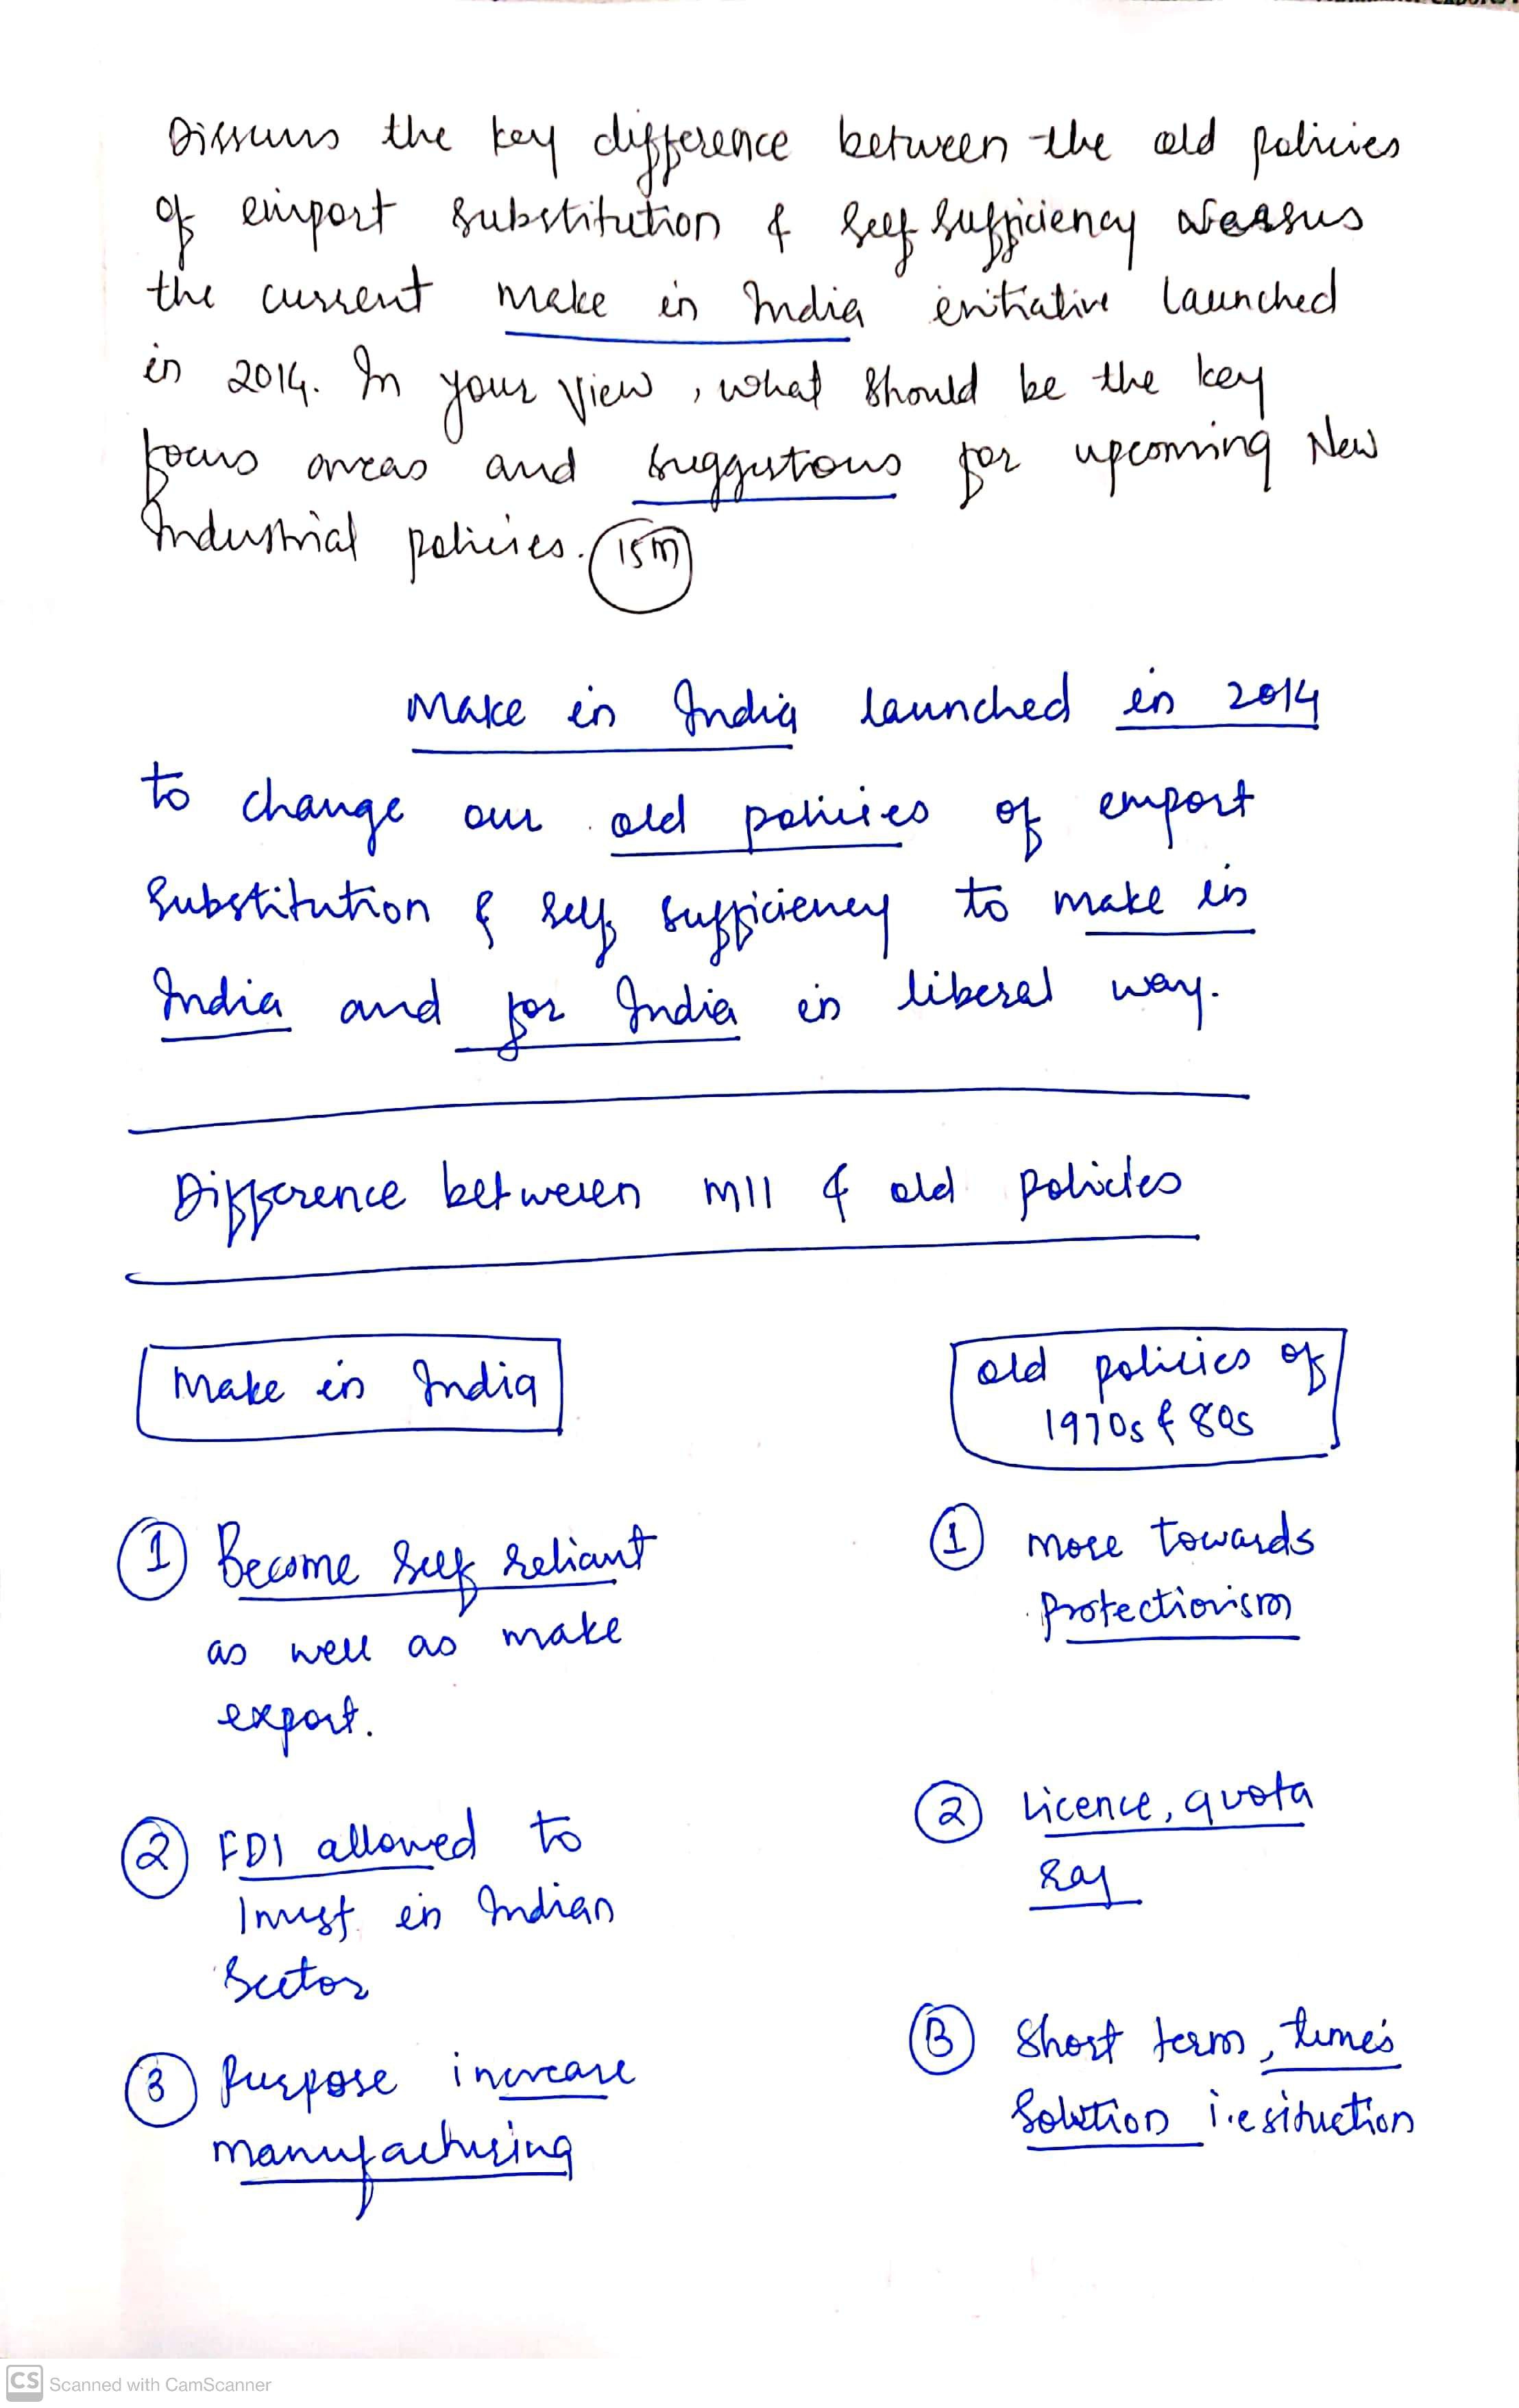 Discuss the key difference between the old policies
of import substitution & self sufficiency versus
the current make in India initiative launched
in 2014. In your view, what should be the key
focus areas and suggestions for upcoming New
Industrial policies. 15m
Make in India launched in 2014
to change our old policies of import
Substitution & self sufficiency to make in
India and for India in liberal way.
Difference between MII & old policies
Make in India
old policies of
1970s & 80s
1 Become self reliant
as well as make
export.
1 more towards
Protectionism
2 FDI allowed to
Invest in Indian
Sector
2 Licence, quota
Raj
3 Purpose increase
manufacturing
3 Short term, time's
Solution i.e situction
CS Scanned with CamScanner